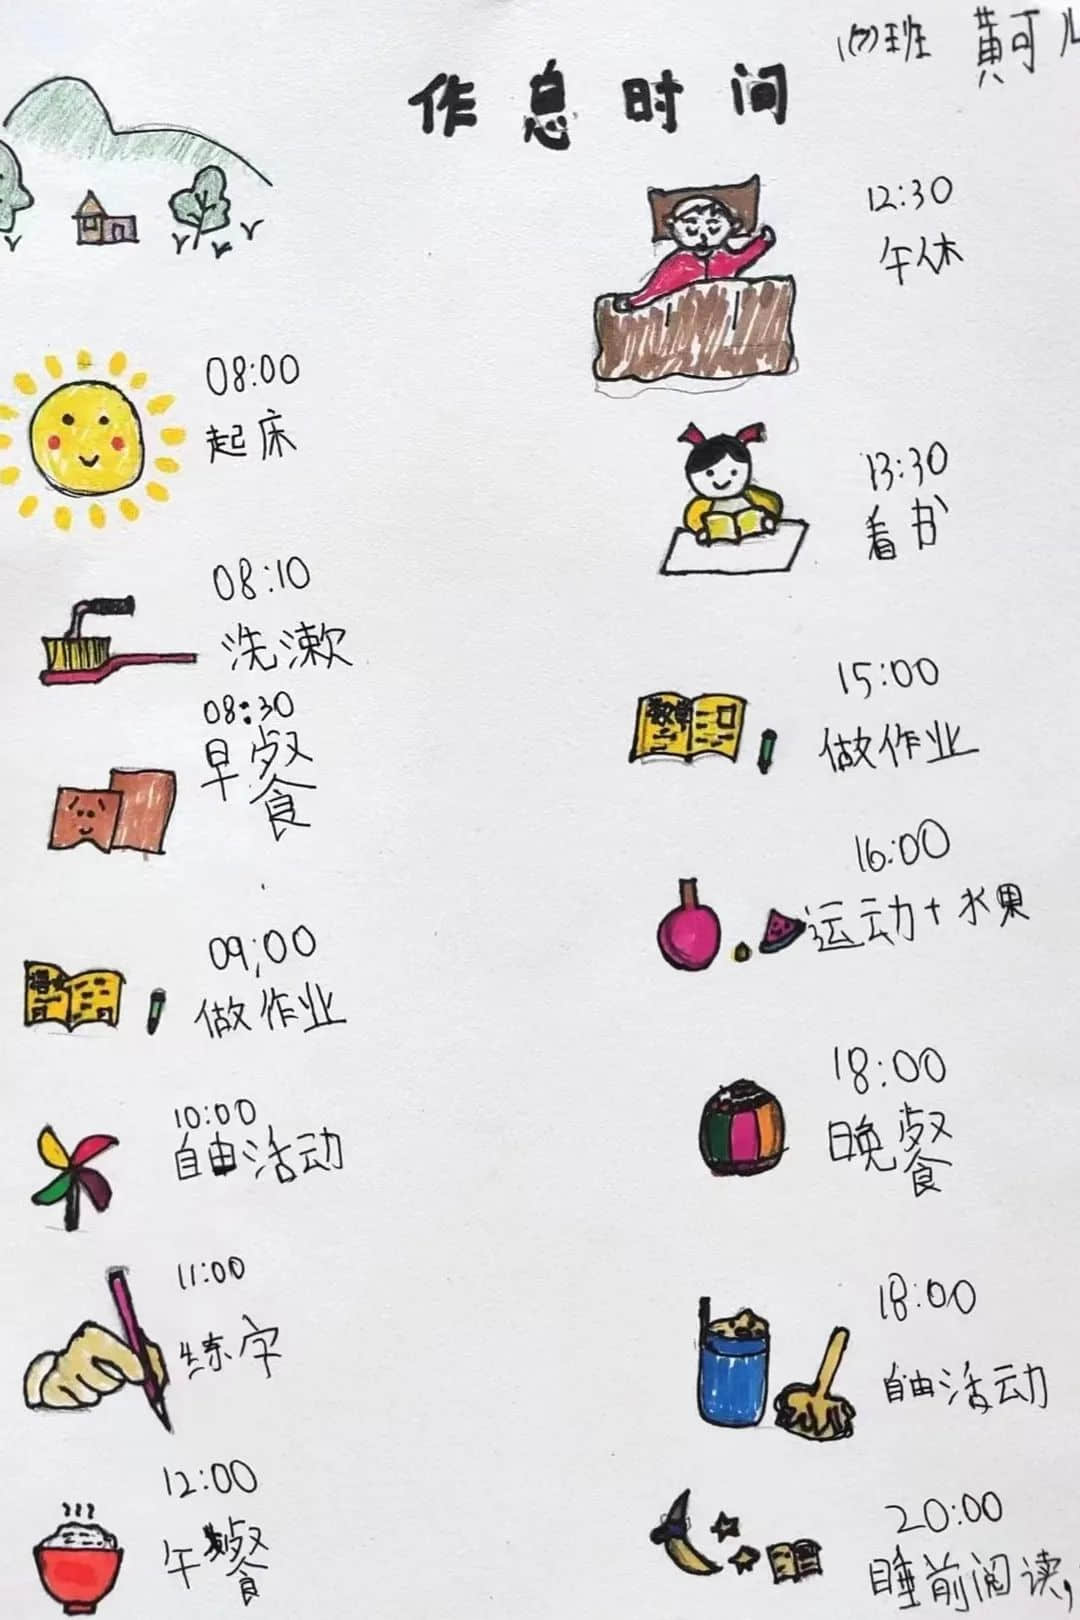 作息时间
1(7)班 黄可儿
08:00
起床
08:10
洗漱
08:30
早餐
09:00
做作业
10:00
自由活动
11:00
练字
12:00
午餐
12:30
午休
13:30
看书
数学
15:00
做作业
16:00
运动+水果
18:00
晚餐
18:00
自由活动
20:00
睡前阅读,